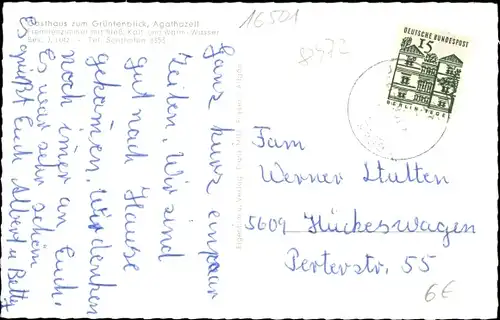 16501
8972
Gasthaus zum Grüntenblick, Agathazell
Fremdenzimmer mit fließ. Kalt- und Warm-Wasser
Tel. Sonthofen
DEUTSCHE BUNDESPOST
15
BERLIN-TEGEL
Ganz kurz ein paar
Zeilen. Wir sind
gut nach Hause
gekommen. Wir denken
noch imer an Euch.
Es war sehr schöm
Es grüßt Euch Albert u Betty
Fam.
Werner Stulten
5609 Hückeswagen
Peterstr. 55
6€